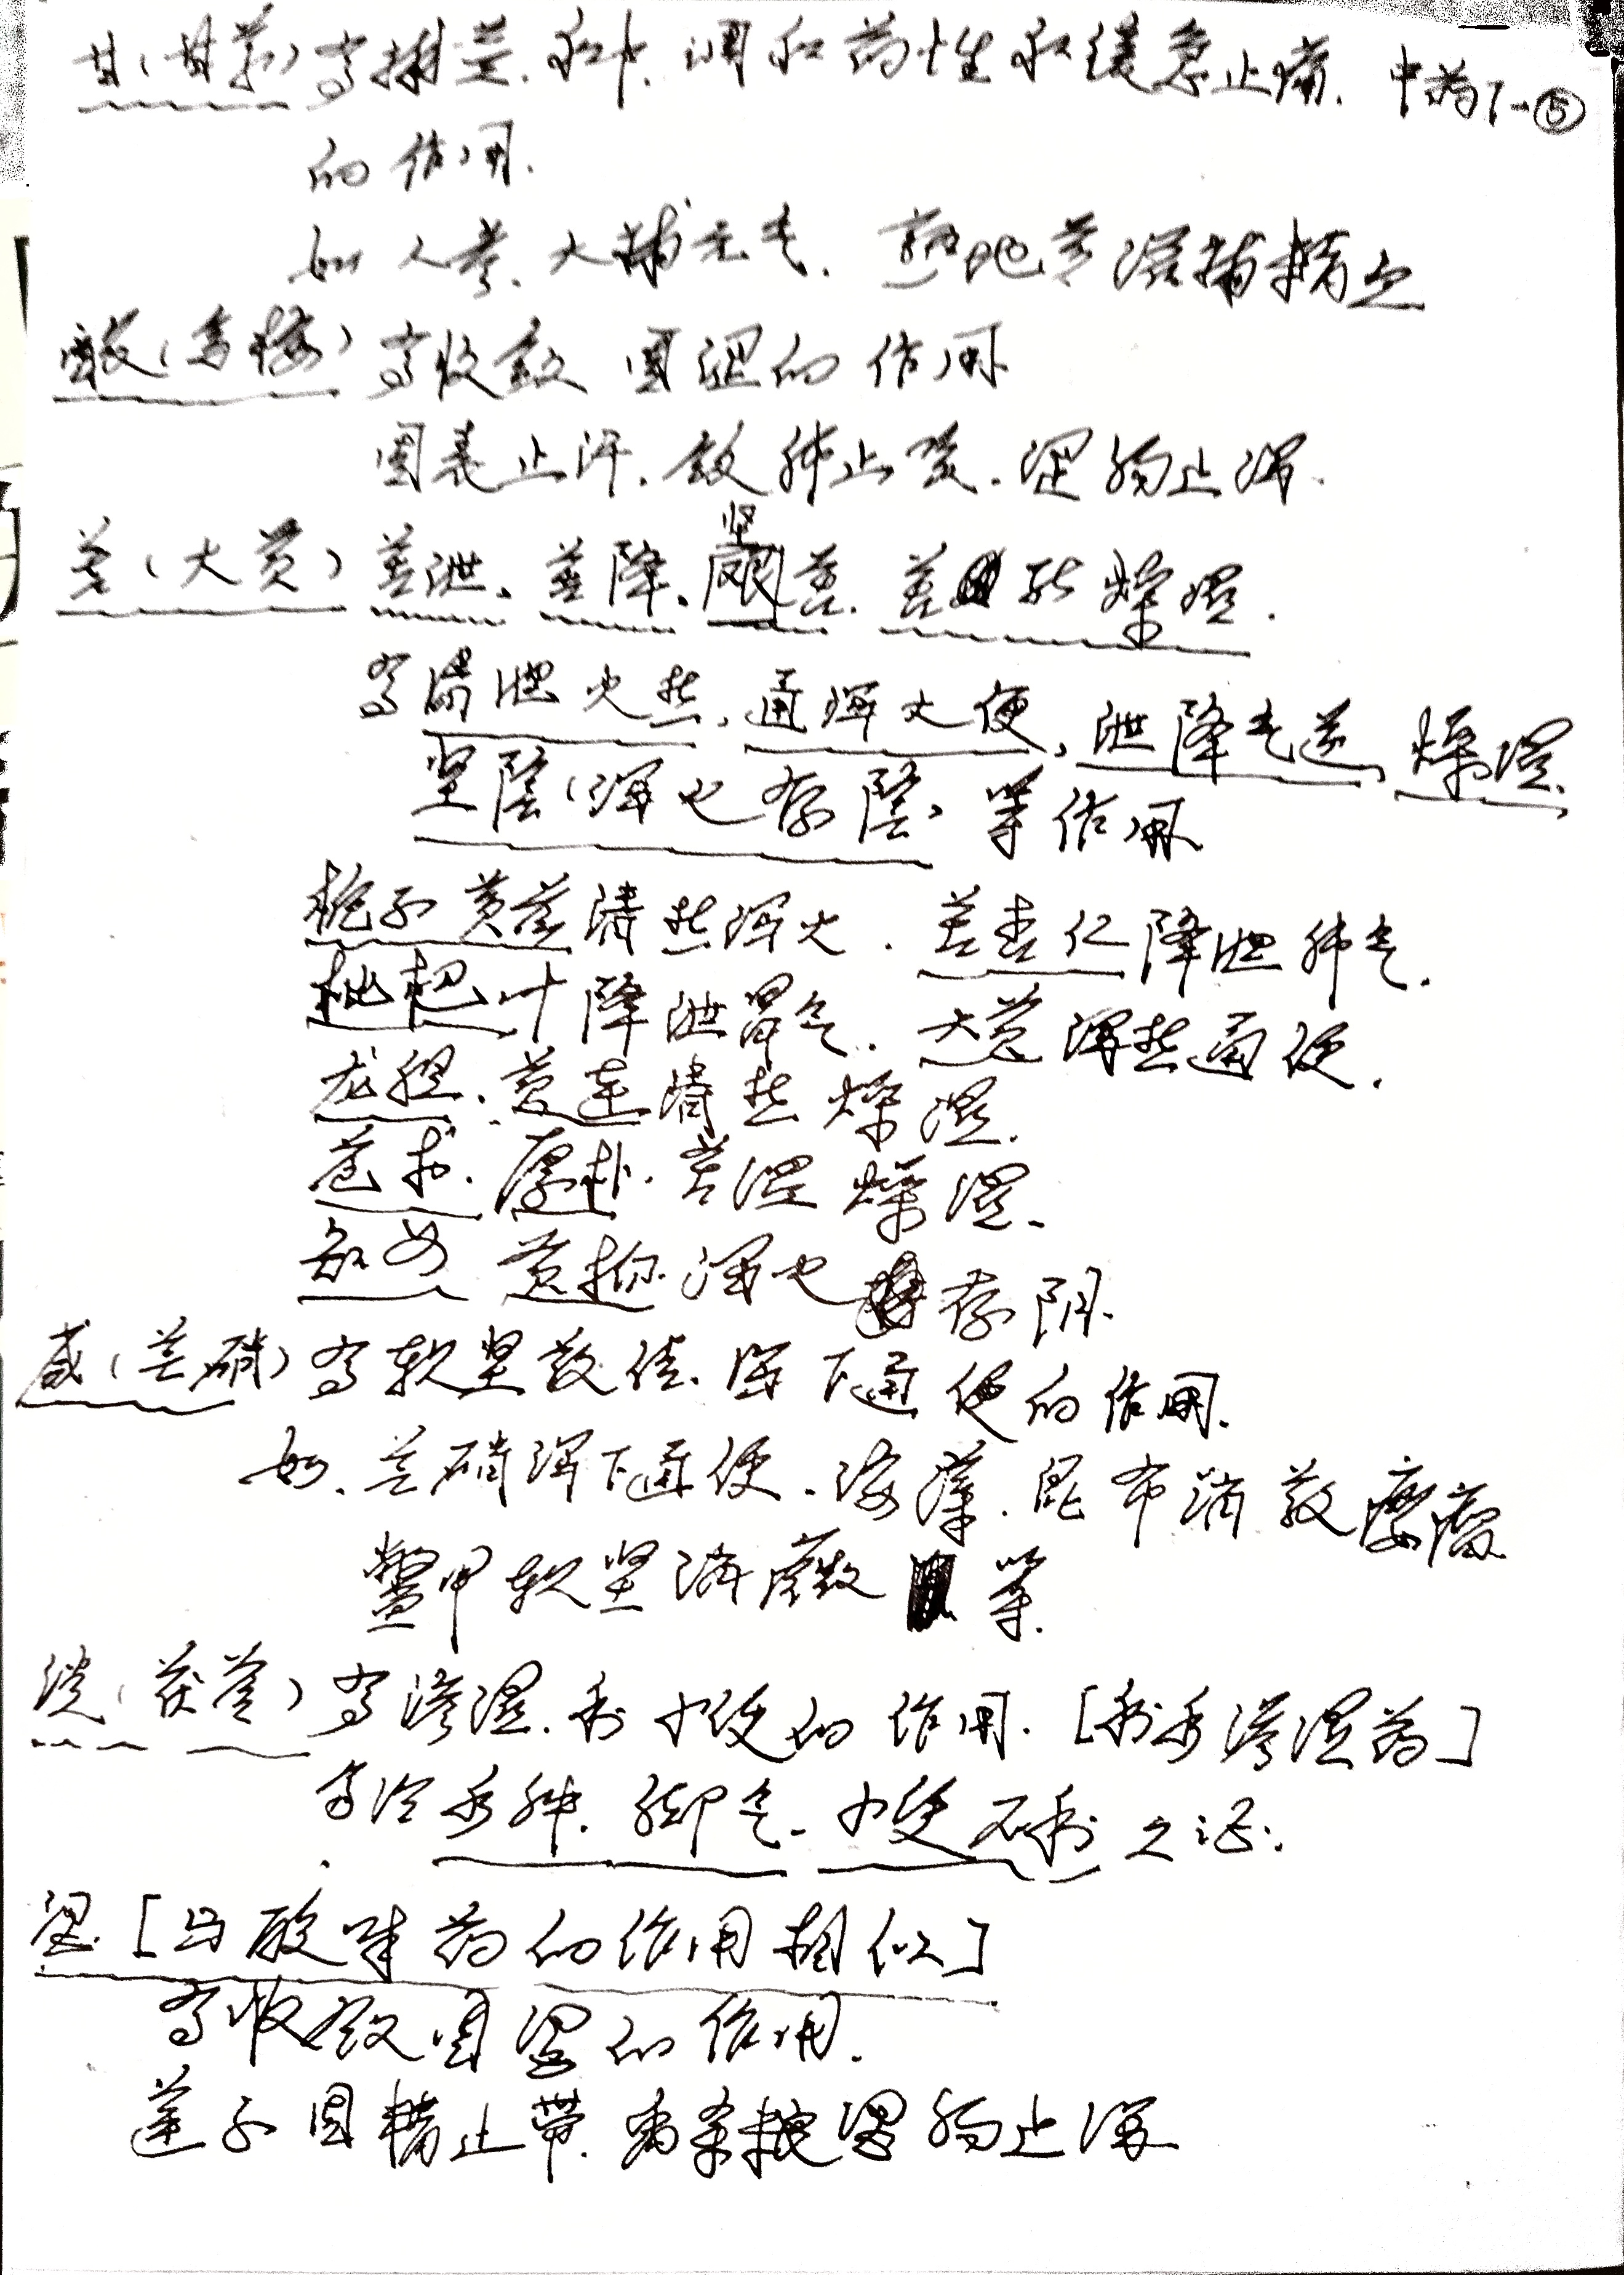 甘(甘草)有补益.和中.调和药性和缓急止痛.中药1-⑤
的作用.
如人参.大补元气.熟地黄滋补精血
酸(乌梅)有收敛固涩的作用
固表止汗.敛肺止咳.涩肠止泻.
苦(大黄)苦泄.苦降.坚苦.苦能燥湿.
有清泄火热、通泻大便、泄降气逆、燥湿、
坚阴(泻火存阴)等作用
栀子黄芩清热泻火.苦杏仁降泄肺气.
枇杷叶降泄胃气.大黄泻热通便.
龙胆.黄连清热燥湿.
苍术.厚朴.苦温燥湿.
知母黄柏泻火存阴.
咸(芒硝)有软坚散结.泻下通便的作用.
如.芒硝泻下通便.海藻.昆布消散瘿瘤
鳖甲软坚消癥等.
淡(茯苓)有渗湿.利小便的作用.[利水渗湿药]
多治水肿.脚气.小便不利之证.
涩[与酸味药的作用相似]
有收敛固涩的作用.
莲子固精止带.禹余粮涩肠止泻